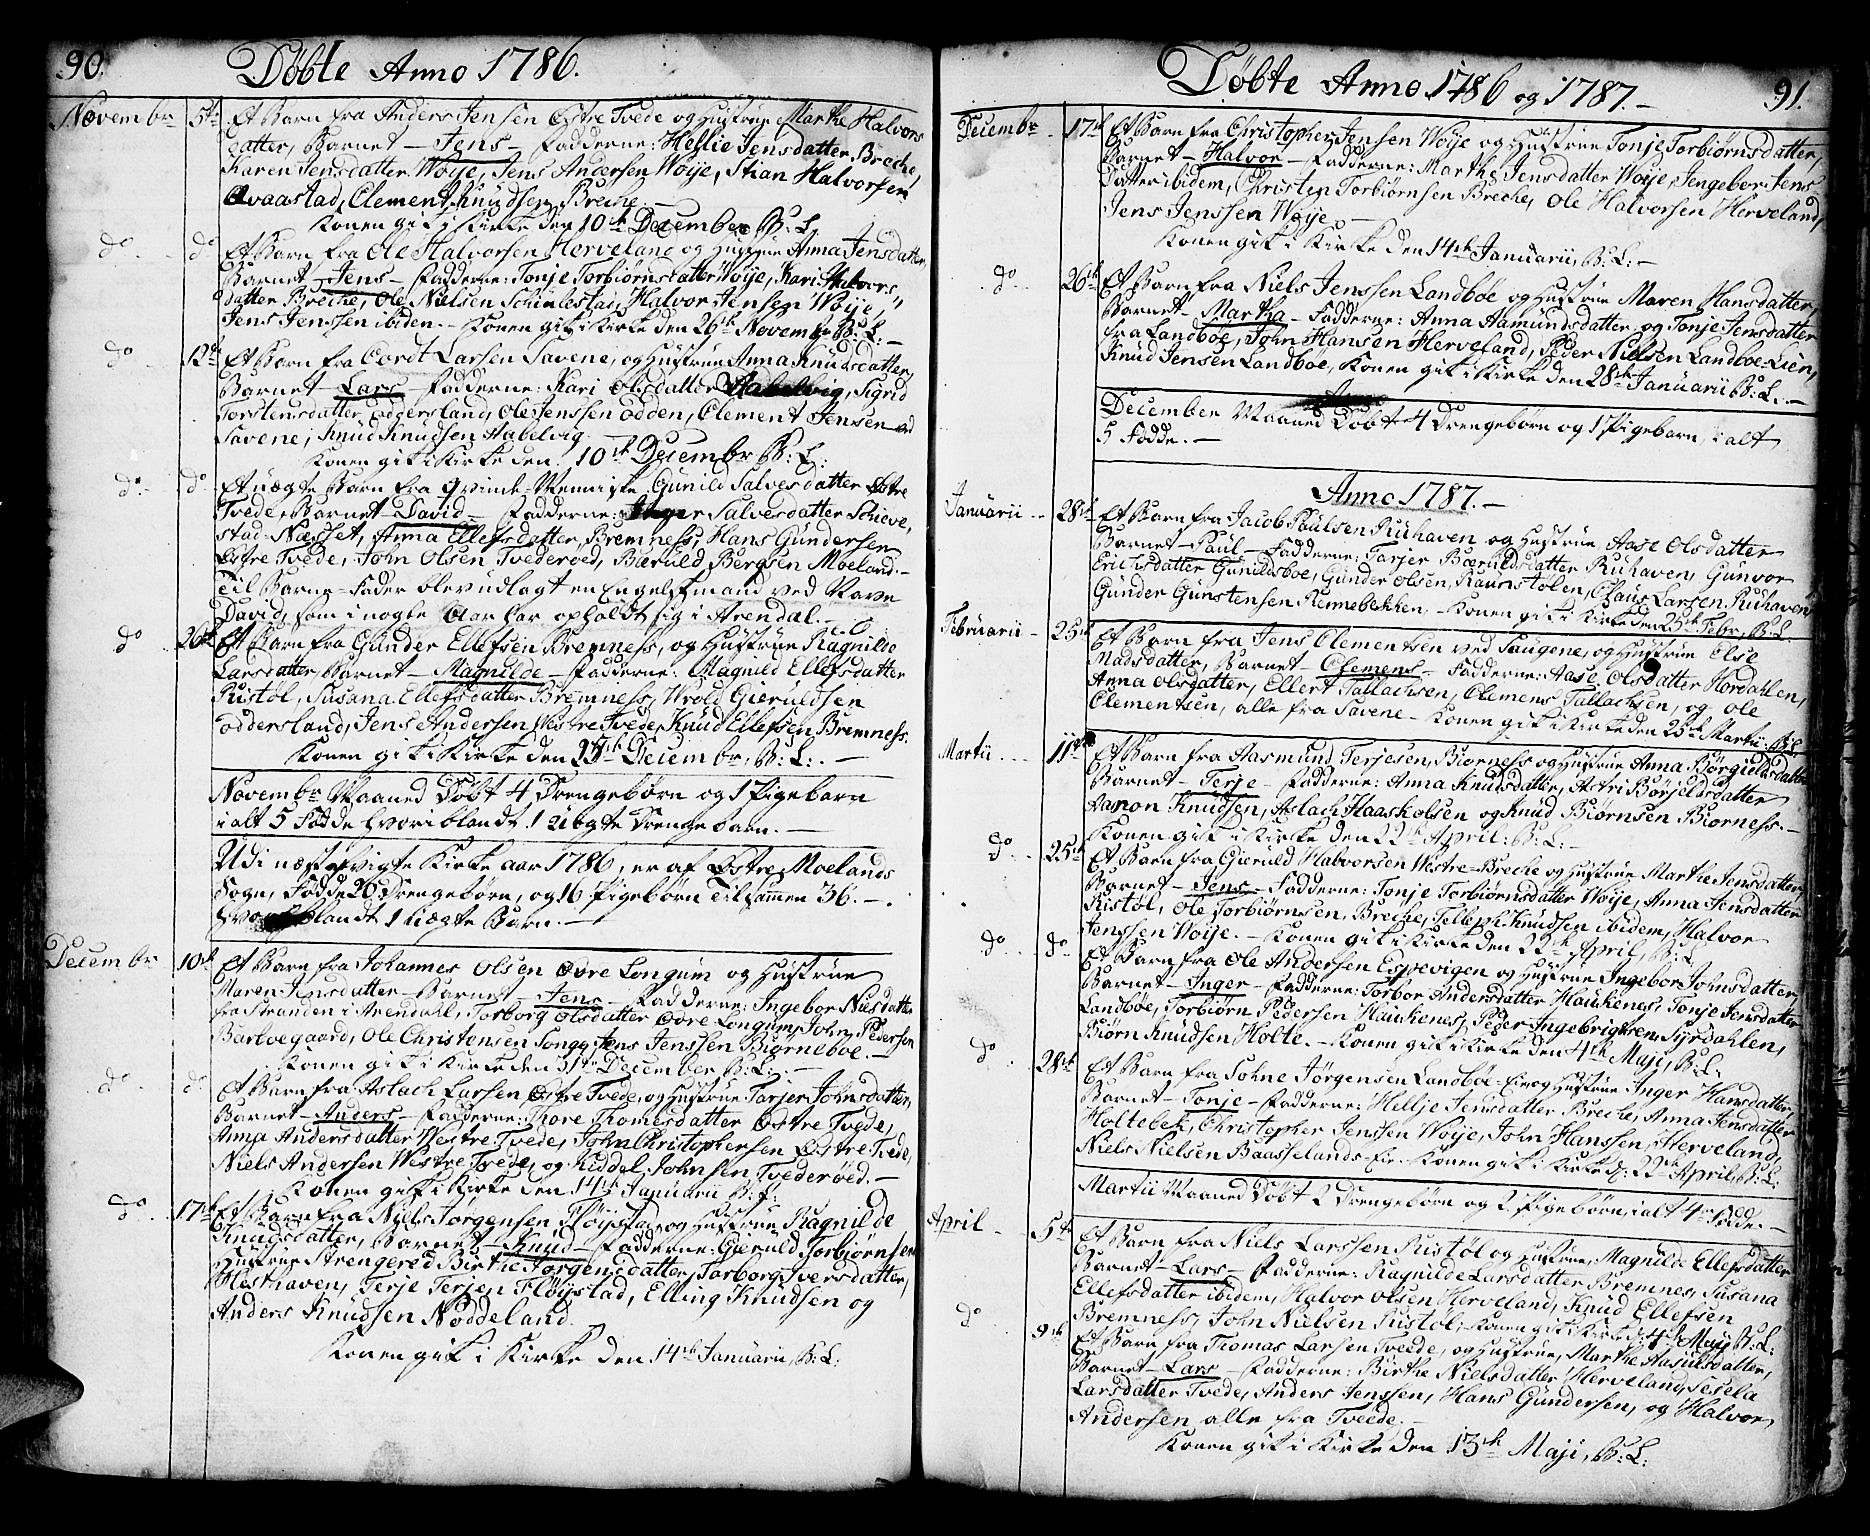 90.
Døbte Anno 1786.
Novembr 5te Et Barn fra Anders Jensen Østre Tvede og Hustrue Marthe Halvors
datter, Barnet - Jens - Fadderne: Hellie Jensdatter Breche,
Karen Jensdatter Woÿe, Jens Andersen Woÿe, Stian Halvorsen
Qvaastad, Clement Knudsen Breche. -
Konen gik i Kirke den 10de December B: L:
do do Et Barn fra Ole Halvorsen Herveland og Hustrue Anna Jensdatter,
Barnet Jens - Fadderne: Tonje Torbiørnsdatter Woÿe, Kari Halvors
datter Breche, Ole Nielsen Schinlestad, Halvor Jensen Woÿe,
Jens Jenssen ibiden. - Konen gik i Kirke den 26de Novembr B: L: -
do 12te Et Barn fra Cordt Larsen Savene, og Hustrue Anna Knudsdatter,
Barnet - Lars - Fadderne: Kari Olsdatter Habelvig, Sigrid
Torstensdatter Oddersland, Ole Jenssen Odden, Clement Jensen ved
Savene, Knud Knudsen Habelvig. -
Konen gik i Kirke den 10de Decembr B: L:
do do Et uægte Barn fra Qvinde-Menniske Gunild Salvesdatter Østre
Tvede, Barnet David - Fadderne: Inger Salvesdatter Schieve
stad-Næsset, Anna Ellefsdatter Bremness, Hans Gundersen
Østre Tvede, John Olsen Tvederøed, Bæruld Bergsen Moeland. -
Til Barne-Fader blev udlagt en Engelskmand ved Navn
David, som i nogle Aar har opholdt sig i Arendal. -
do 26de Et Barn fra Gunder Ellefsen Bremness, og Hustrue Ragnilde
Larsdatter, Barnet - Magnilde - Fadderne: Magnild Ellefsdatter
Rustøl, Susana Ellefsdatter Bremness, Wrold Gieruldsen
Oddersland, Jens Andersen Westre Tvede, Knud Ellefsen Bremness.
Konen gik i Kirke den 25de Decembr, B: L: . -
Novembr Maaned Døbt 4 Drengebørn og 1 Pigebarn
i alt 5 Fødde hvoriblandt 1 Uægte Drengebarn. -
Udi næstafvigte Kirke aar 1786, er af Østre Moelands
Sogn, Fødde 20 Drengebørn, og 16 Pigebørn Tilsammen 36. -
hvoriblandt 1 uægte Barn. -
Decembr 10de Et Barn fra Johannes Olsen Øvre Longum og Hustrue
Maren Jensdatter - Barnet - Jens - Fadderne: Ingebor Nielsdatter
fra Stranden i Arendahl, Torborg Olsdatter Øvre Longum, John Pedersen
Bartvegaard, Ole Christensen Songe Jens Jenssen Biørneboe. -
Konen gik i Kirke den 31te December B: L: -
do do Et Barn fra Aslach Larsen Østre Tvede, og Hustrue Tarjer Johnsdatter,
Barnet - Anders - Fadderne: Thore Thomesdatter Østre Tvede,
Anna Andersdatter Westre Tvede, John Christophersen Østre Tvede,
Niels Andersen Westre Tvede, og Riddel Johnsen Tvederøed. -
Konen gik i Kirke den 14de Januarii B: L:
do 17de Et Barn fra Niels Jørgensen Fløÿstad, og Hustrue Ragnilde
Knudsdatter, Barnet - Knud - Fadderne: Gieruld Torbiørnsen
Hustrue Strengered Birthe Jørgensdatter, Torborg Iversdatter,
Hesthaven, Terje Terjen Fløÿstad, Elling Knudsen og
Anders Knudsen Nøddeland.
Konen gik i Kirke den 14de Januarii, B: L:
Døbte Anno 1786 og 1787. -
91.
Decembr 17de Et Barn fra Christopher Jensen Woÿe og Hustrue Tonje Torbiørnsdatter,
Barnet - Halvor - Fadderne: Marthe Jensdatter Woÿe, Jengebor Jens
Datter ibidem, Christen Torbiørnsen Breche, Ole Halvorsen Herveland,
Jens Jenssen Woÿe. -
Konen gik i Kirke den 14de Januarii, B: L: -
do 26de Et Barn fra Niels Jenssen Landbøe og Hustrue Maren Hansdatter,
Barnet - Martha - Fadderne: Anna Aamundsdatter, og Tonje Jensdatter
fra Landbøe, John Hansen Herveland, Peder Nielsen Landbøe-Eien,
Knud Jensen Landbøe, Konen gik i Kirke den 28de Januarii B: L: . -
December Maaned Døbt 4 Drengebørn og 1 Pigebarn, i alt
5 Fødde. -
Anno 1787. -
Januarii 28de Et Barn fra Jacob Paulsen Ruhaven og Hustrue Aase Olsdatter
Barnet - Paul - Fadderne: Tarjer Bæruldsdatter Ruhaven, Gunvor
Erichsdatter Gunildsboe, Gunder Olsen, Ravnstølen, Claus Larsen Ruhaven
Gunder Gunstensen Rennebekken. - Konen gik i Kirke den 25de Febr. B: L:
Februarii 25de Et Barn fra Jens Clementsen ved Saugene, og Hustrue Else
Madsdatter, Barnet - Clemens - Fadderne: Aase Olsdatter Hordahlen,
Anna Olsdatter, Ellert Tallachsen, Clemens Tallachsen, og Ole
Clementsen, alle fra Savene - Konen gik i Kirke den 25de Martii. B: L:
Martii 11te Et Barn fra Aasmund Terjesen, Biorness og Hustrue Anna Børgieldsdatter
Barnet - Terje - Fadderne: Anna Knudsdatter, Astri Børjeldsdatter
Aanon Knudsen, Aslach Haaskolsen og Knud Biørnsen Biorness. -
Konen gik i Kirke den 22de April: B: L: -
do 25de Et Barn fra Gieruld Halvorsen Westre-Breche og Hustrue Marthe Jensdatter,
Barnet - Jens - Fadderne: Tonje Torbiørnsdatter Woÿe, Anna Jensdatter
Ristøl, Ole Torbiørnsen, Breche, Telleph Knudsen ibidem, Halvor
Jenssen Woÿe. - Konen gik i Kirke den 22de April, B: L:
do do Et Barn fra Ole Andersen Espevigen og Hustrue Ingebor Johnsdatter,
Barnet - Inger - Fadderne: Torbor Andersdatter Haukenes, Tonje Jensdatter
Landbøe, Torbiørn Pedersen Haukenes, Peder Ingebrigtsen, Syrdahlen,
Biørn Knudsen Holte. - Konen gik i Kirke den 4de Maji, B: L:
do 28de Et Barn fra Sohne Jørgensen Landbøe-Eie og Hustrue Inger Hansdatter,
Barnet - Tonje - Fadderne: Hellje Jensdatter Breche, Anna Jensdatter
Holtebek, Christopher Jenssen Woÿe, John Hanssen, Herveland,
Niels Nielsen Baasselands-Eie. Konen gik i Kirke d: 22de April, B: L:
Martii Maaned Døbt 2 Drengebørn og 2 Pigebørn, i alt 4re Fødde. -
April 5te Et Barn fra Niels Larssen Rustøl og Hustrue, Magnilde Ellefsdatter
Barnet - Lars - Fadderne: Ragnilde Larsdatter Bremnes, Susana
Ellefsdatter ibidem, Halvor Olsen Herveland, Knud Ellefsen
Bremness, John Nielsen Rustøl, Konen gik i Kirke d: 4de Maji B: L:
do 9de Et Barn fra Thomas Larsen Tveede, og Hustrue, Marthe Aasulsdatter,
Barnet - Lars - Fadderne: Birthe Nielsdatter Herveland, Sesela
Larsdatter Tvede, Anders Jenssen, Hans Gundersen, og Halvor
Andersen alle fra Tveede. -
Konen gik i Kirke den 13de Maji, B: L: